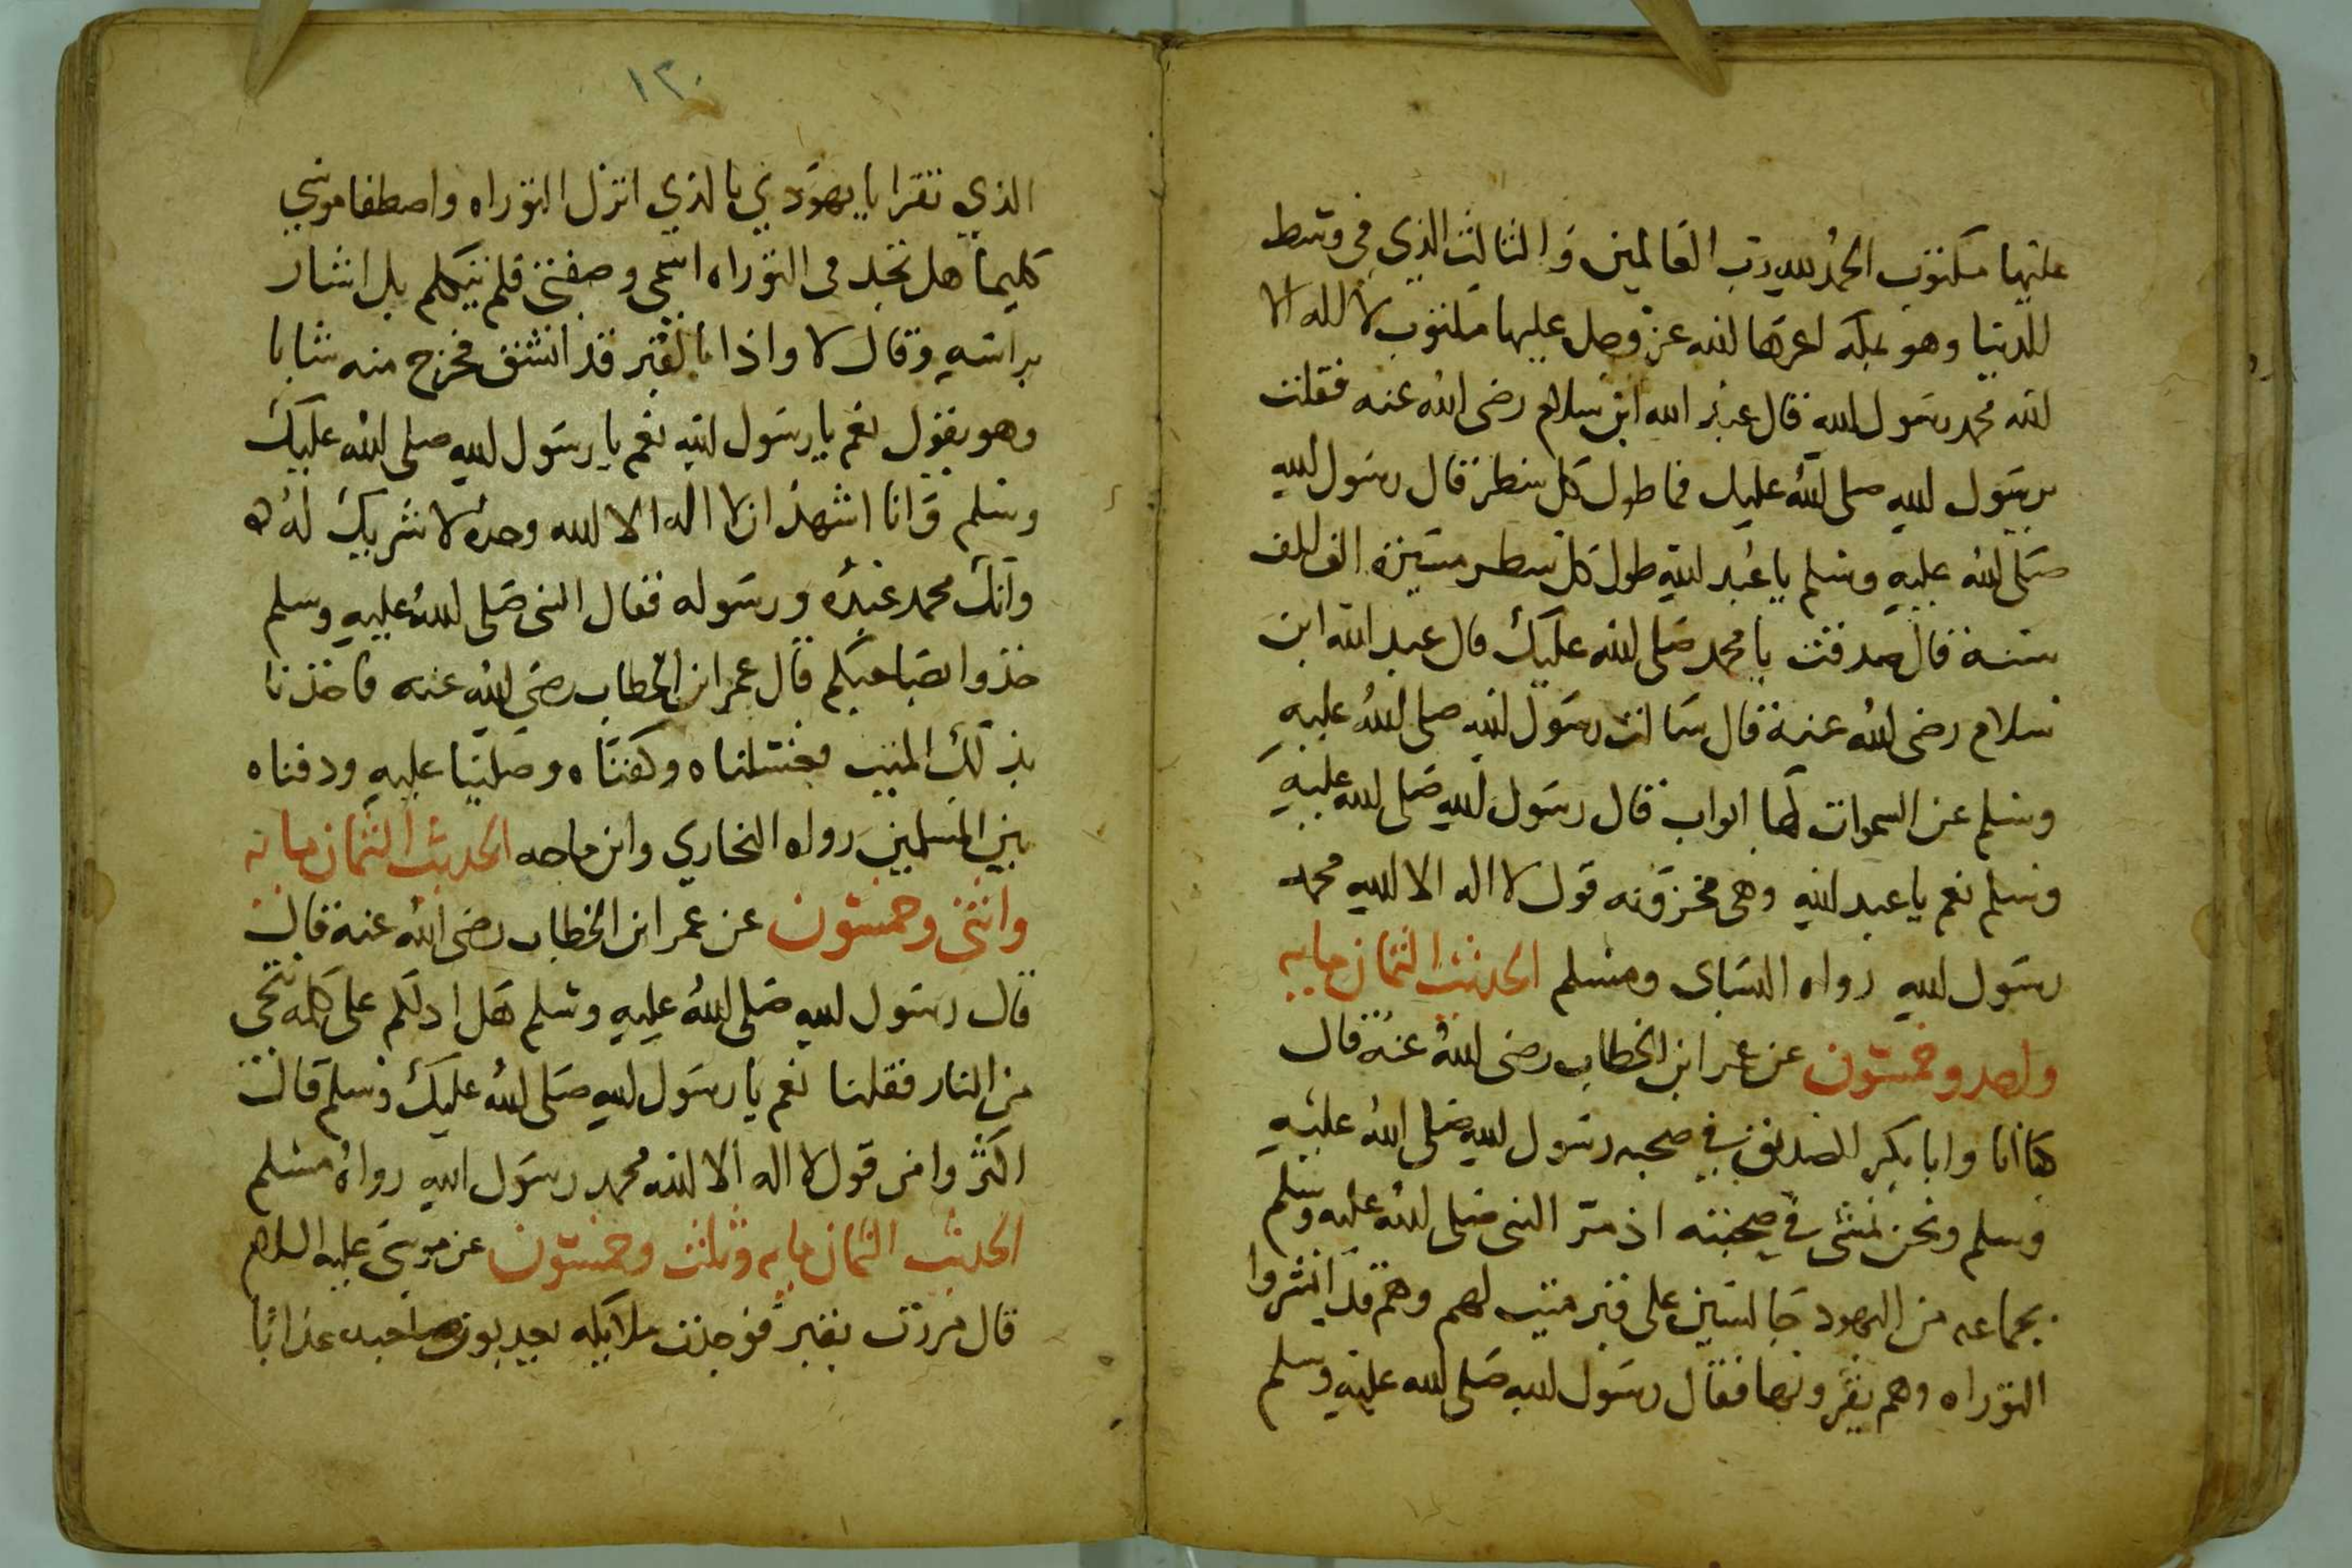 عليها مكتوب الحمد لله رب العالمين والثالث الذي في وسط
للدنيا وهو بمكه اعزها الله عز وجل عليها مكتوب لا اله الا
الله محمد رسول الله قال عبد الله ابن سلام رضى الله عنه فقلت
يرسول الله صلى الله عليك فما طول كل سطر قال رسول الله
صلى الله عليه وسلم يا عبد الله طول كل سطر مسيرة الف الف
سنة قال صدقت يا محمد صلى الله عليك قال عبد الله ابن
سلام رضى الله عنه قال سالت رسول الله صلى الله عليه
وسلم عن السموات لها ابواب قال رسول الله صلى الله عليه
وسلم نعم يا عبد الله وهى مخزونه قول لا اله الا الله محمد
رسول الله رواه النساى ومسلم الحديث الثمان مايه
واحد وخمسون عن عمر ابن الخطاب رضى الله عنه قال
كنا انا وابا بكر الصديق في صحبه رسول الله صلى الله عليه
وسلم ونحن نمشى في صحبته اذ مر النبى صلى الله عليه وسلم
بجماعه من اليهود جالسين على قبر ميت لهم وهم قد انشروا
التوراه وهم يقرونها فقال رسول الله صلى الله عليه وسلم
١٣٠
الذي تقرا يا يهودي بالذي انزل التوراه واصطفا موسي
كليما هل تجد فى التوراه اسمى وصفتى فلم يتكلم بل اشار
براسه وقال لا واذا بالقبر قد انشق فخرج منه شابا
وهو يقول نعم يا رسول الله نعم يا رسول الله صلى الله عليك
وسلم وانا اشهد ان لا اله الا الله وحده لا شريك له
وانك محمد عبده ورسوله فقال النبى صلى الله عليه وسلم
خذوا بصاحبكم قال عمر ابن الخطاب رضي الله عنه فاخذنا
بذلك الميت فغسلناه وكفناه وصلينا عليه ودفناه
بين المسلمين رواه البخاري وابن ماجه الحديث الثمان مايه
واثنى وخمسون عن عمر ابن الخطاب رضى الله عنه قال
قال رسول الله صلى الله عليه وسلم هل ادلكم على كلمه تنجى
من النار فقلنا نعم يا رسول الله صلى الله عليك وسلم قال
اكثروا من قول لا اله الا الله محمد رسول الله رواه مسلم
الحديث الثمان مايه وثلث وخمسون عن موسى عليه السلام
قال مررت بقبر فوجدت ملايكه يعذبون صاحبه عذابا